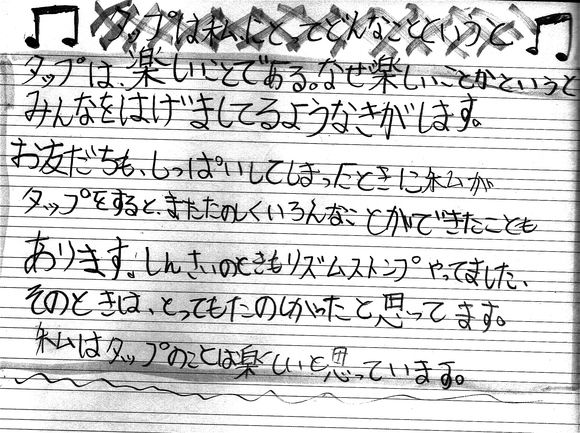 タップは私にとってどんなことというと
タップは、楽しいことである。なぜ楽しいことかというと
みんなをはげましてるようなきがします。
お友だちも、しっぱいしてしまったときに私が
タップをすると、またたのしくいろんなことができたことも
あります。しんさいのときもリズムストンプやってました、
そのときは、とってもたのしかったと思ってます。
私はタップのことは楽しいと思っています。